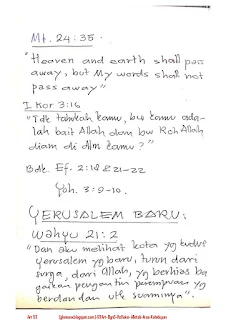 Mt. 24:35.
"Heaven and earth shall pass
away, but My words shall not
pass away"
I Kor 3:16
"Tdk tahukah kamu, bw kamu ada-
lah bait Allah dan bw Roh Allah
diam di dlm kamu?"
Bdk. Ef. 2:18 & 21-22
Yoh. 3:9-10.
YERUSALEM BARU:
Wahyu 21:2
"Dan aku melihat kota yg kudus
Yerusalem yg baru, turun dari
surga, dari Allah, yg berhias ba
gaikan pengantin perempuan yg
berdandan utk suaminya".